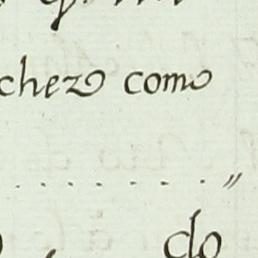 chezo como
. . . . . . . . "
do